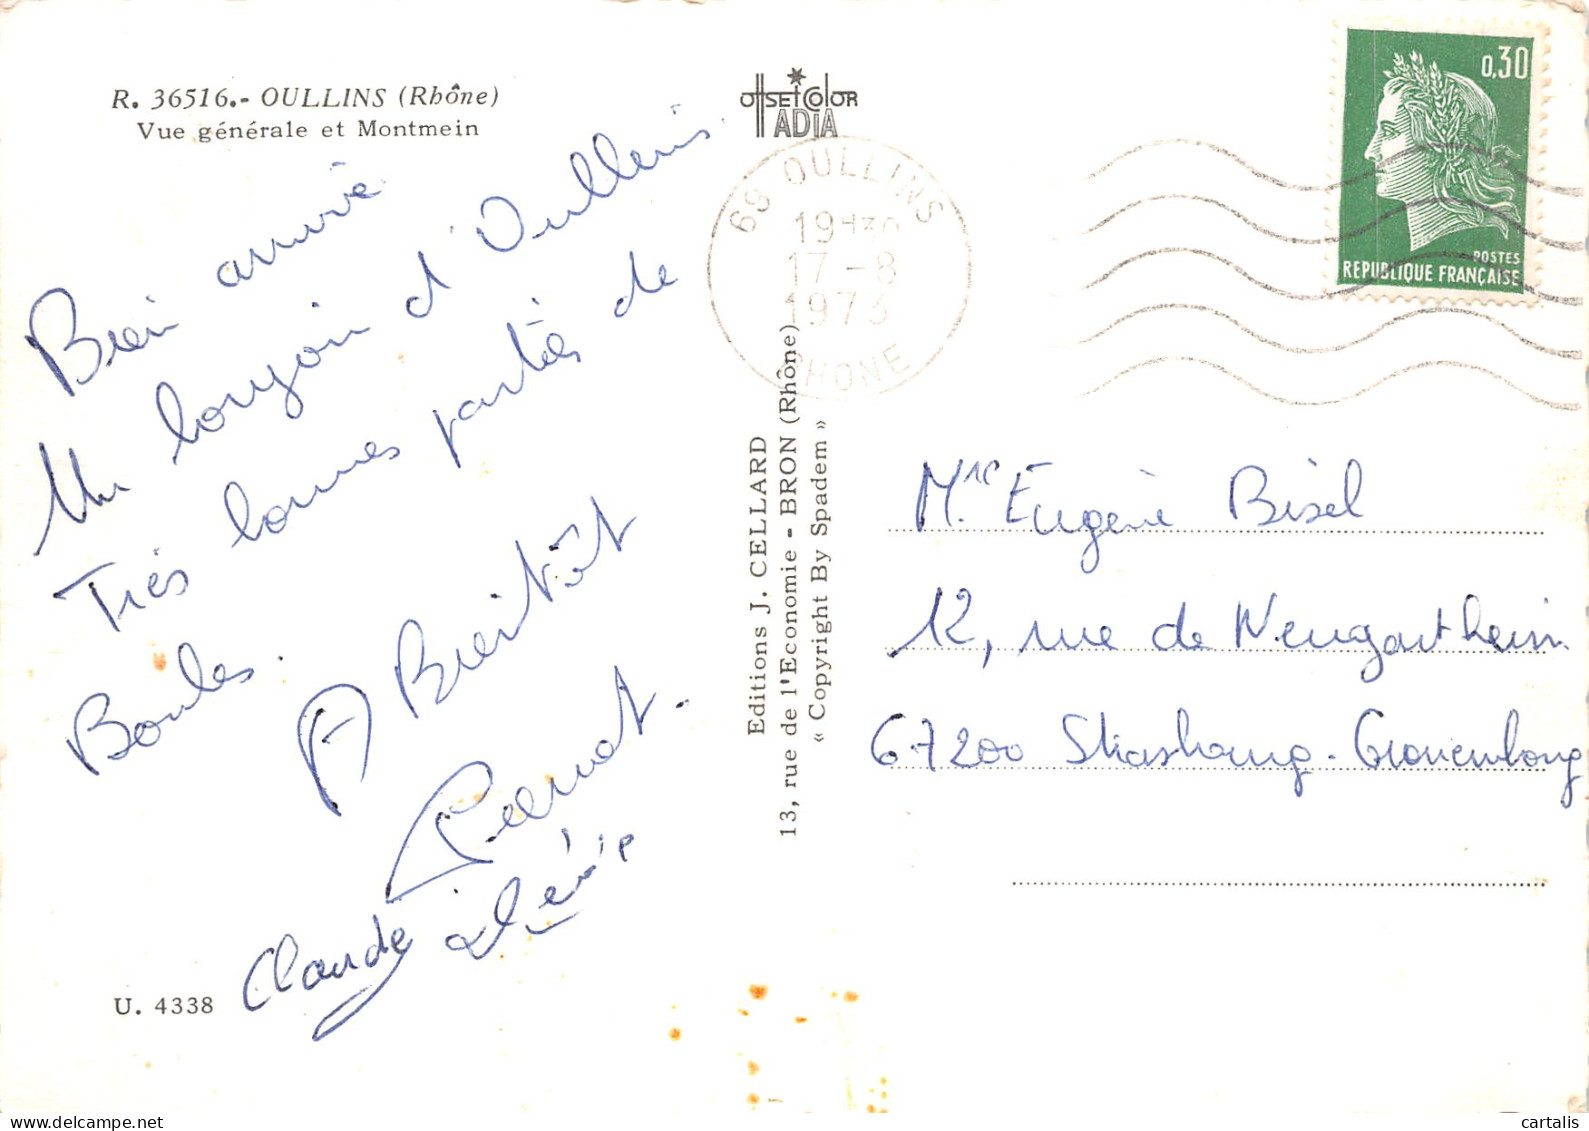 R. 36516.- OULLINS (Rhône)
Vue générale et Montmein
OFFSET COLOR
ADIA
Bien arrivé
Un bonjour d'Oullins.
Très bonnes partés de
Boules.
A Bientôt
Pernot.
Claude
U. 4338
Editions J. CELLARD
13, rue de l'Economie - BRON (Rhône)
« Copyright By Spadem »
69 OULLINS
19H30
17-8
1973
RHONE
0,30
POSTES
REPUBLIQUE FRANÇAISE
Eugène Bisel
12, rue de Wengartheim
67200 Strasbourg - Cronenbourg
cartalis